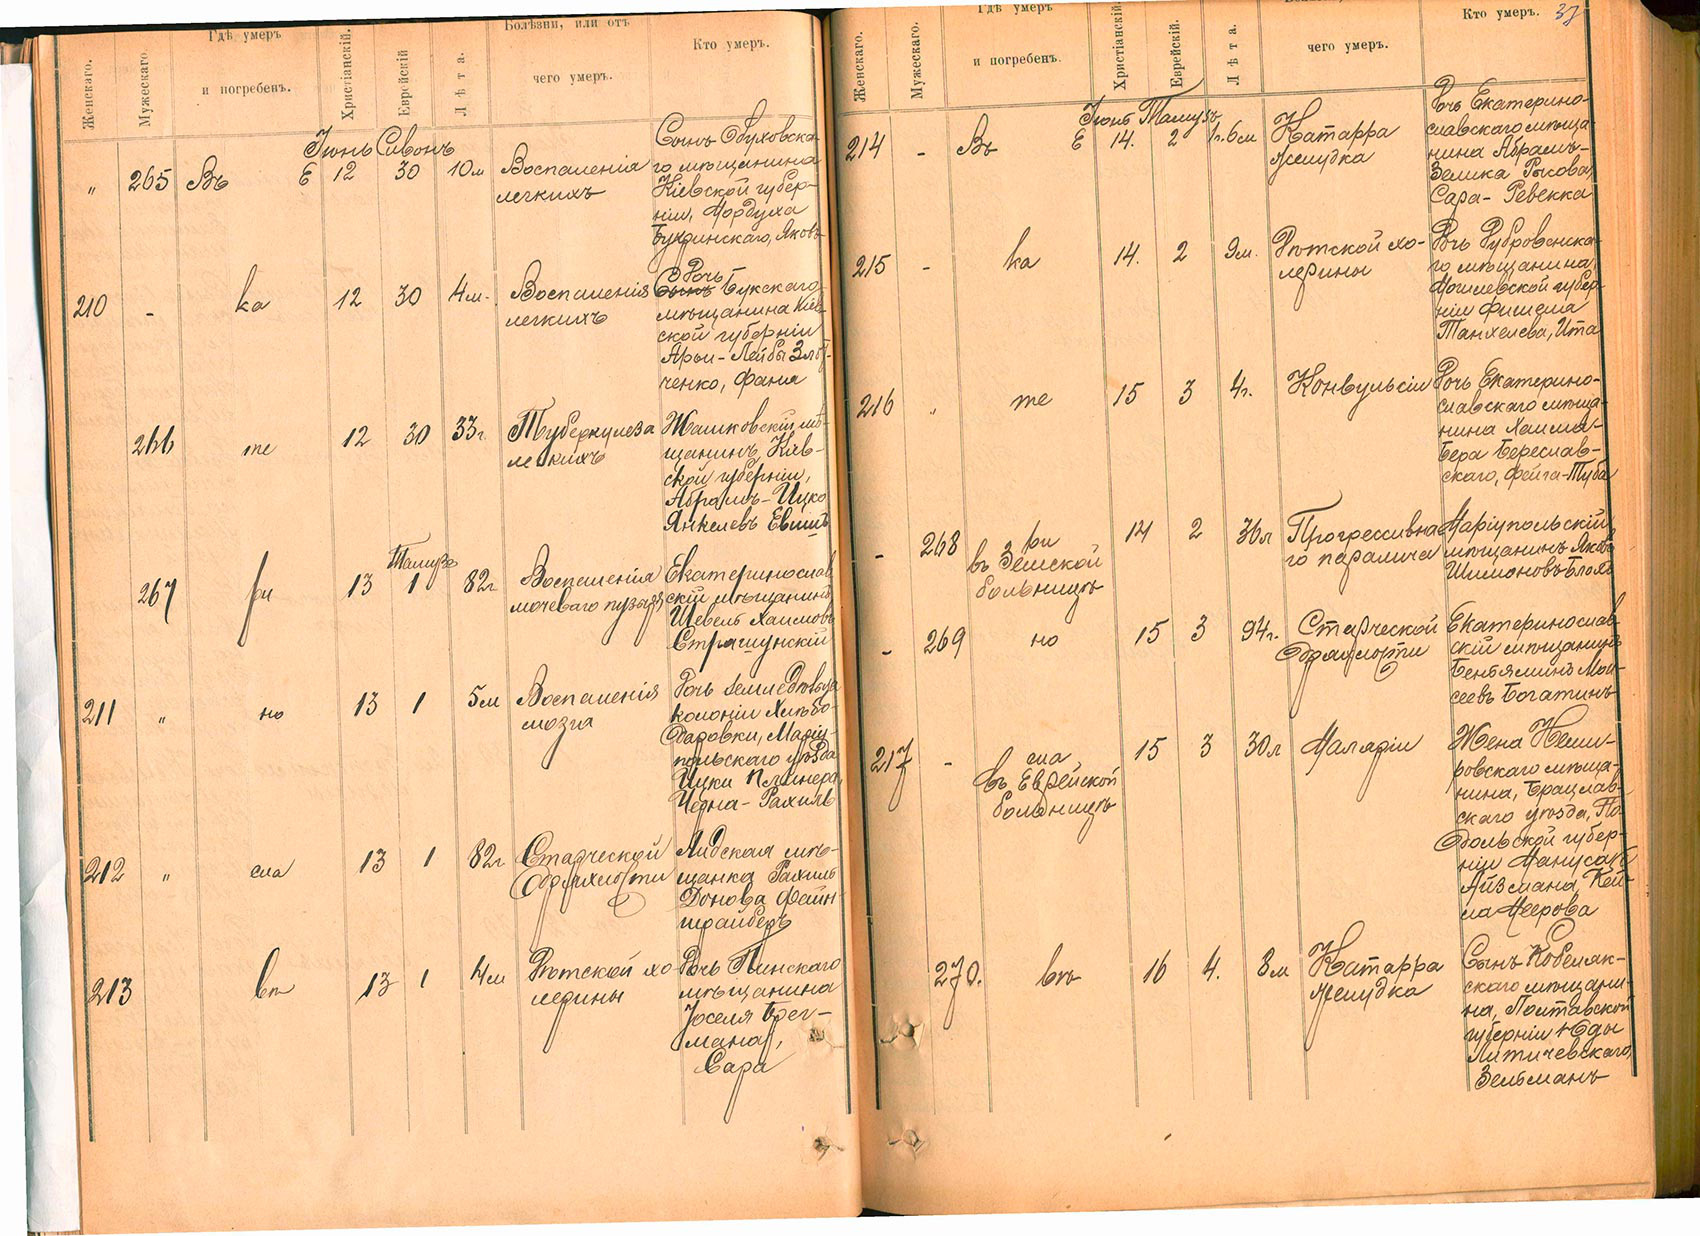 Женскаго.
Мужескаго.
Гдѣ умеръ
и погребенъ.
Христіанскій.
Еврейскій
Лѣта.
Болѣзни, или отъ
чего умеръ.
Кто умеръ.
Іюнь Сивонъ
„ 265 Въ Е 12 30 10м Воспаленія
легкихъ
Сынъ Обуховска-
го мѣщанина
Кіевской губер-
ніи, Мордуха
Яковъ
210 - ка 12 30 4м. Воспаленія
легкихъ
Дочь
Сынъ Букскаго
мѣщанина Кіев-
ской губерніи
Арьи-Лейбы
ченко, Фаня
266 те 12 30 33г. Туберкулеза
легкихъ
Жашковскій мѣ-
щанинъ, Кіев-
ской губерніи,
Абрамъ-Ицко
Янкелевъ
Тамузъ
267 ри 13 1 82г. Воспаленія
мочеваго пузыря
Екатеринослав
скій мѣщанинъ
Шевель Хаимовъ
Страшунскій
211 „ но 13 1 5м Воспаленія
мозга
Дочь земледѣльца
колоніи Хлѣбо-
даровки, Маріу-
польскаго уѣзда
Ицки Плинера,
Черна-Рахиль
212 „ сла 13 1 82г Старческой
дряхлости
Лидская мѣ-
щанка Рахиль
Донова Файн
шрайберъ
213 13 1 4м Дѣтской хо-
лерины
Дочь Пинскаго
мѣщанина
Іоселя Брег-
мана,
Сара
37
Женскаго.
Мужескаго.
Гдѣ умеръ
и погребенъ.
Христіанскій
Еврейскій.
Лѣта.
чего умеръ.
Кто умеръ.
Іюнь Тамузъ
214 - Въ Е 14. 2 1г.6м Катарра
желудка
Дочь Екатерино-
славскаго мѣща-
нина Абрамъ-
Зелика Рысова,
Сара-Ревекка
215 - ка 14. 2 9м. Дѣтской хо-
лерины
Дочь Дубровенска-
го мѣщанина,
Могилевской губер-
ніи Фишеля
Танхелева, Ита
216 „ те 15 3 4г. Конвульсіи
Дочь Екатерино-
славскаго мѣща-
нина Хаима-
Бера Береслав-
скаго, Фейга-Туба
- 268 ри
въ Земской
больницѣ
14 2 36л Прогрессивна
го паралича
Маріупольскій
мѣщанинъ Яковъ
Шимоновъ Блохъ
- 269 но 15 3 94г. Старческой
дряхлости
Екатеринослав
скій мѣщанинъ
Бенъяминъ Мои-
сеевъ Богатинъ
217 - сла
въ Еврейской
больницѣ
15 3 30л Маляріи
Жена Неми-
ровскаго мѣща-
нина, Брацлав-
скаго уѣзда, По-
дольской губер-
ніи
Айзмана, Кей-
ла Меерова
270. въ 16 4. 8м Катарра
желудка
Сынъ Кобеляк-
скаго мѣщани-
на, Полтавской
губерніи Юды
Литичевскаго,
Зельманъ